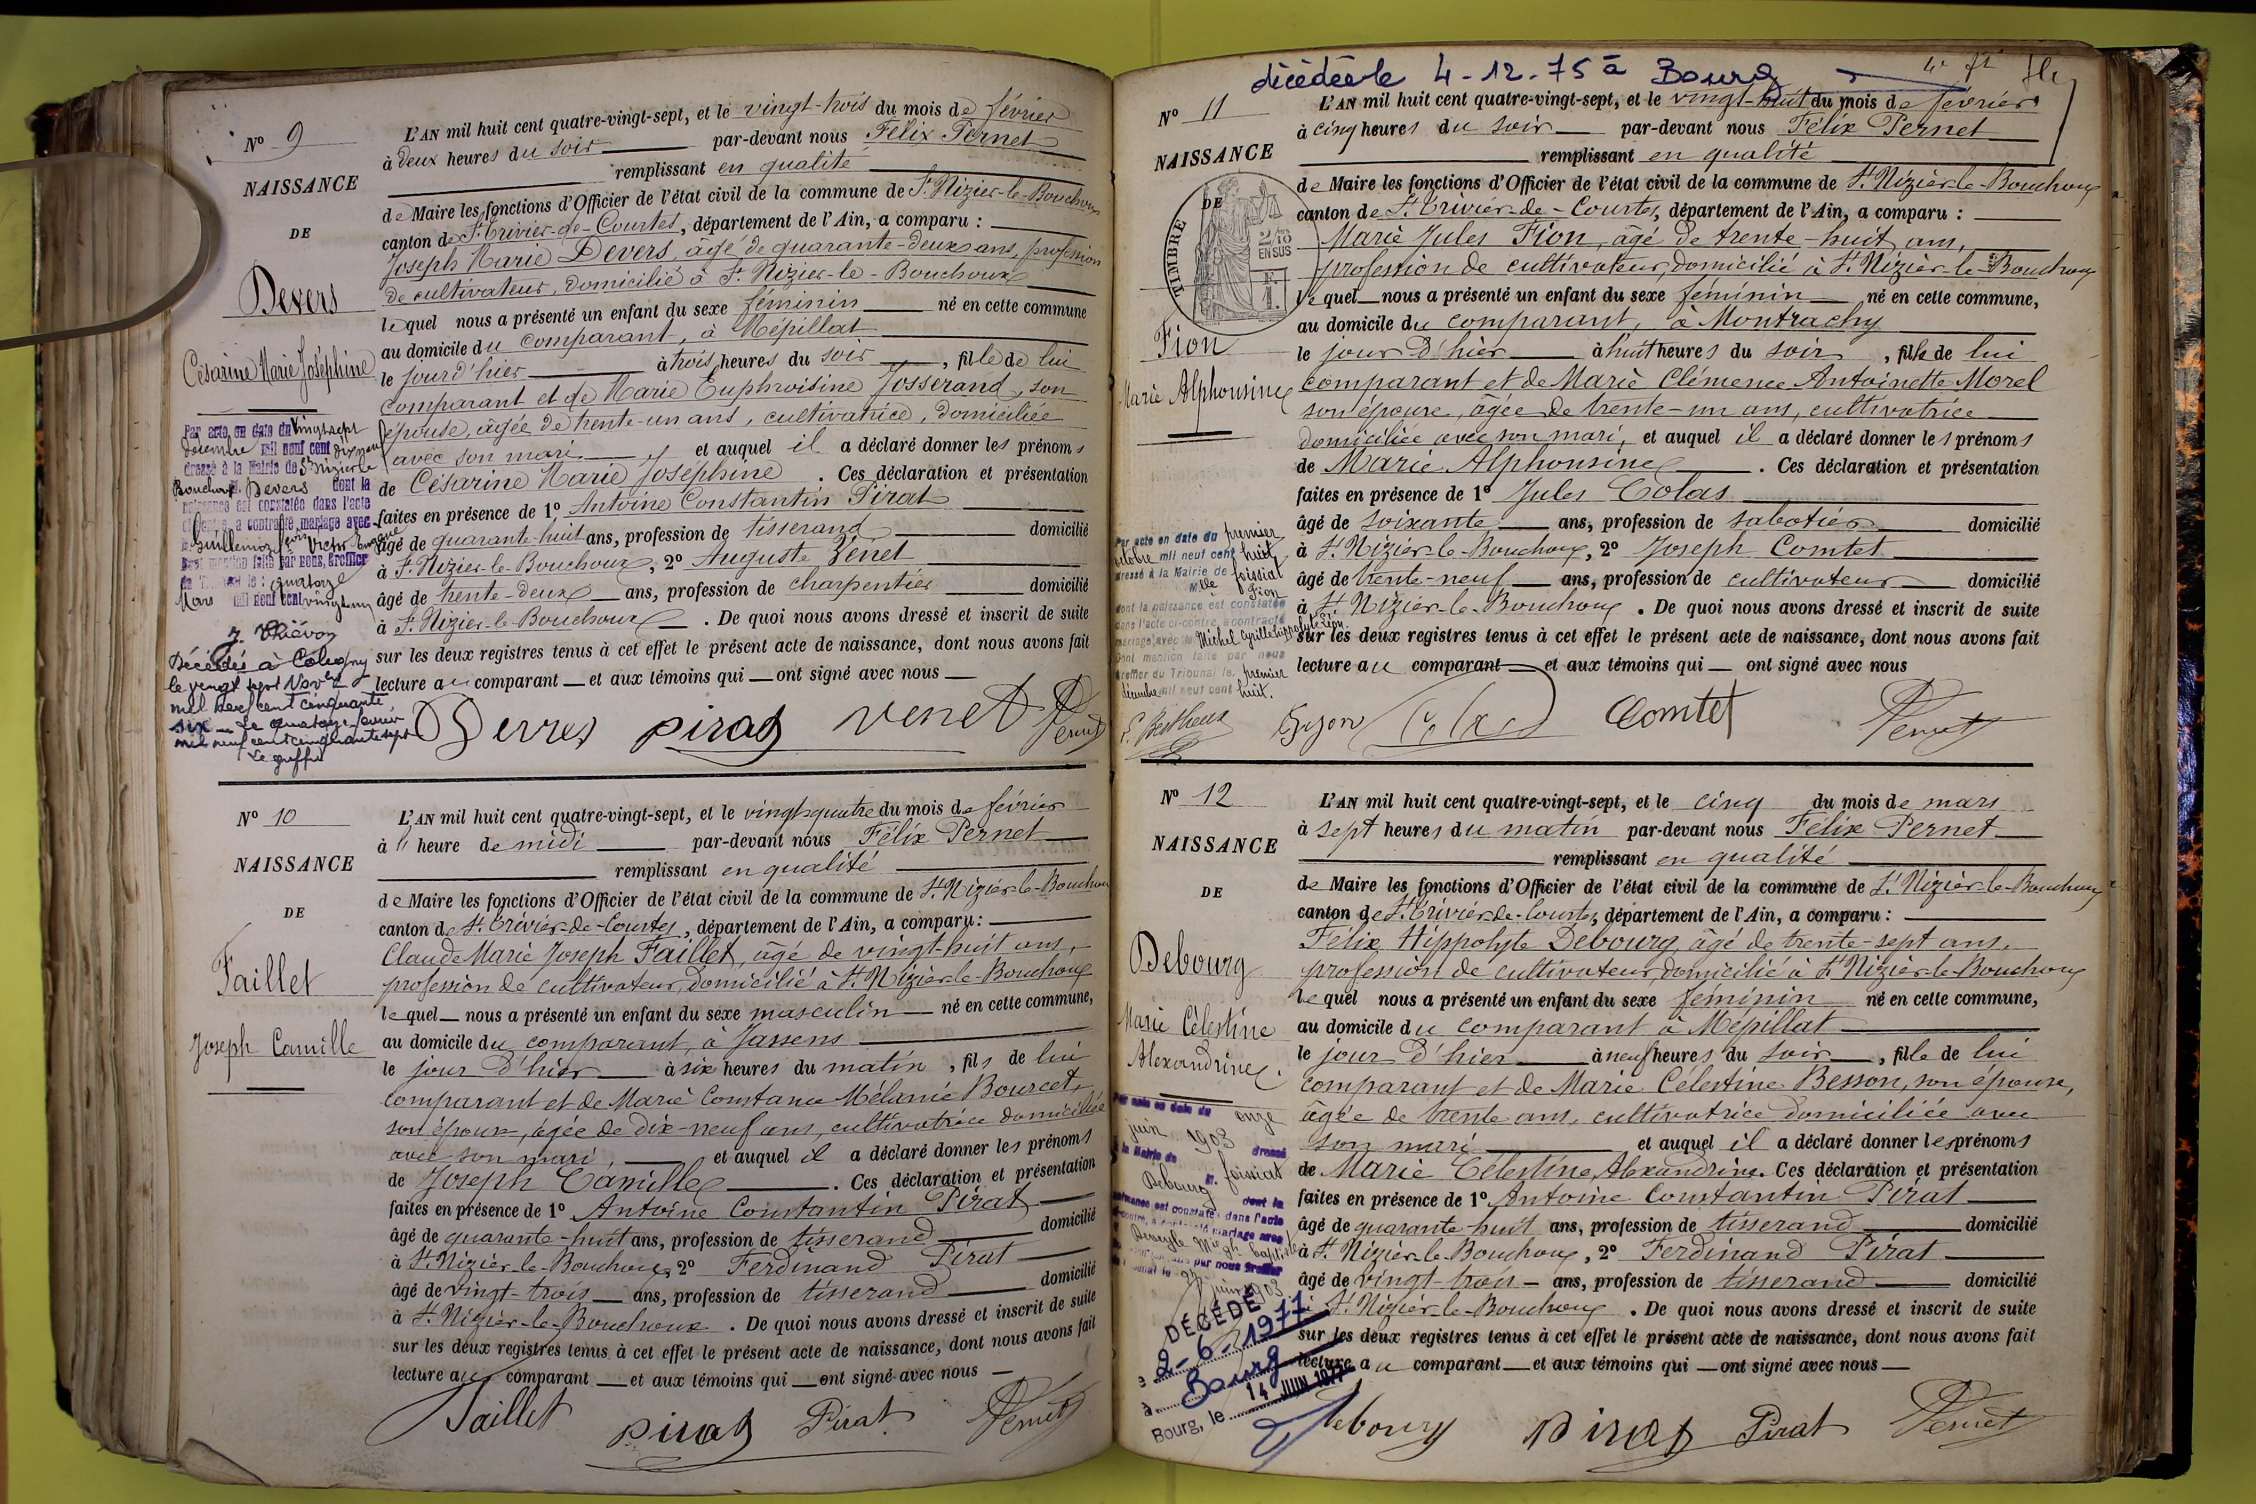 N° 9
NAISSANCE
DE
Devers
Césarine Marie Joséphine
Par acte en date du vingt sept
décembre mil neuf cent dix neuf
dressé à la Mairie de St Nizier le
Bouchoux Devers dont la
naissance est constatée dans l'acte
ci-contre a contracté mariage avec
Guillemoz Victor
dont mention faite par nous, Greffier
quatorze
Mars mil neuf cent vingt
Décédée à Coligny
le vingt sept Novbre
mil neuf cent cinquante
six — Le quatorze février
mil neuf cent cinquante sept
Le greffier
L'AN mil huit cent quatre-vingt-sept, et le vingt-trois du mois de février
à deux heures du soir par-devant nous Félix Pernet
remplissant en qualité
de Maire les fonctions d'Officier de l'état civil de la commune de St Nizier-le-Bouchoux
canton de St Trivier-de-Courtes, département de l'Ain, a comparu :
Joseph Marie Devers, âgé de quarante-deux ans, profession
de cultivateur, domicilié à St Nizier-le-Bouchoux
lequel nous a présenté un enfant du sexe féminin né en cette commune
au domicile du comparant, à Mépillat
le jour d'hier à trois heures du soir, fille de lui
comparant et de Marie Euphroisine Josserand, son
épouse, âgée de trente-un ans, cultivatrice, domiciliée
avec son mari, et auquel il a déclaré donner les prénoms
de Césarine Marie Joséphine. Ces déclaration et présentation
faites en présence de 1° Antoine Constantin Pirat
âgé de quarante-huit ans, profession de tisserand domicilié
à St Nizier-le-Bouchoux, 2° Auguste Vénet
âgé de trente-deux ans, profession de charpentier domicilié
à St Nizier-le-Bouchoux. De quoi nous avons dressé et inscrit de suite
sur les deux registres tenus à cet effet le présent acte de naissance, dont nous avons fait
lecture au comparant et aux témoins qui ont signé avec nous
Devres pirat venet Pernet
N° 10
NAISSANCE
DE
Faillet
Joseph Camille
L'AN mil huit cent quatre-vingt-sept, et le vingt-quatre du mois de février
à " heure de midi par-devant nous Félix Pernet
remplissant en qualité
de Maire les fonctions d'Officier de l'état civil de la commune de St Nizier-le-Bouchoux
canton de St Trivier-de-Courtes, département de l'Ain, a comparu :
Claude Marie Joseph Faillet, âgé de vingt-huit ans,
profession de cultivateur, domicilié à St Nizier-le-Bouchoux
lequel nous a présenté un enfant du sexe masculin né en cette commune,
au domicile du comparant, à Jassens
le jour d'hier à six heures du matin, fils de lui
comparant et de Marie Constance Mélanie Bourcet,
son épouse, âgée de dix-neuf ans, cultivatrice domiciliée
avec son mari, et auquel il a déclaré donner les prénoms
de Joseph Camille. Ces déclaration et présentation
faites en présence de 1° Antoine Constantin Pirat
âgé de quarante-huit ans, profession de tisserand domicilié
à St Nizier-le-Bouchoux, 2° Ferdinand Pirat
âgé de vingt-trois ans, profession de tisserand domicilié
à St Nizier-le-Bouchoux. De quoi nous avons dressé et inscrit de suite
sur les deux registres tenus à cet effet le présent acte de naissance, dont nous avons fait
lecture au comparant et aux témoins qui ont signé avec nous
Faillet pirat Pirat Pernet
décédée le 4-12-75 à Bourg
N° 11
NAISSANCE
DE
TIMBRE
2/10
EN SUS
Fion
Marie Alphonsine
Par acte en date du premier
octobre mil neuf cent huit,
dressé à la Mairie de foissiat
Mlle Fion
dont la naissance est constatée
dans l'acte ci-contre, a contracté
mariage, avec Michel Cyrille hippolyte
Dont mention faite par nous
Greffier du Tribunal le premier
décembre mil neuf cent huit.
L'AN mil huit cent quatre-vingt-sept, et le vingt-huit du mois de février
à cinq heures du soir par-devant nous Félix Pernet
remplissant en qualité
de Maire les fonctions d'Officier de l'état civil de la commune de St Nizier-le-Bouchoux
canton de St Trivier-de-Courtes, département de l'Ain, a comparu :
Marie Jules Fion, âgé de trente-huit ans,
profession de cultivateur, domicilié à St Nizier-le-Bouchoux
lequel nous a présenté un enfant du sexe féminin né en cette commune,
au domicile du comparant, à Montrachy
le jour d'hier à huit heures du soir, fille de lui
comparant et de Marie Clémence Antoinette Morel
son épouse, âgée de trente-un ans, cultivatrice
domiciliée avec son mari, et auquel il a déclaré donner les prénoms
de Marie Alphonsine. Ces déclaration et présentation
faites en présence de 1° Jules Colas
âgé de soixante ans, profession de sabotier domicilié
à St Nizier-le-Bouchoux, 2° Joseph Comtet
âgé de trente-neuf ans, profession de cultivateur domicilié
à St Nizier-le-Bouchoux. De quoi nous avons dressé et inscrit de suite
sur les deux registres tenus à cet effet le présent acte de naissance, dont nous avons fait
lecture au comparant et aux témoins qui ont signé avec nous
Colas Comtet Pernet
N° 12
NAISSANCE
DE
Debourg
Marie Célestine
Alexandrine
Par acte en date du onze
juin 1903 dressé
à la Mairie de foissiat
Debourg dont la
naissance est constatée dans l'acte
ci-contre, a contracté mariage avec
par nous Greffier
juin 1903
DÉCÉDÉ
2-6-1977
à Bourg
Bourg, le 14 JUIN 1977
L'AN mil huit cent quatre-vingt-sept, et le cinq du mois de mars
à sept heures du matin par-devant nous Félix Pernet
remplissant en qualité
de Maire les fonctions d'Officier de l'état civil de la commune de St Nizier-le-Bouchoux
canton de St Trivier-de-Courtes, département de l'Ain, a comparu :
Félix Hippolyte Debourg, âgé de trente-sept ans,
profession de cultivateur, domicilié à St Nizier-le-Bouchoux
lequel nous a présenté un enfant du sexe féminin né en cette commune,
au domicile du comparant à Mépillat
le jour d'hier à neuf heures du soir, fille de lui
comparant et de Marie Célestine Besson, son épouse,
âgée de trente ans, cultivatrice domiciliée avec
son mari et auquel il a déclaré donner les prénoms
de Marie Célestine Alexandrine. Ces déclaration et présentation
faites en présence de 1° Antoine Constantin Pirat
âgé de quarante-huit ans, profession de tisserand domicilié
à St Nizier-le-Bouchoux, 2° Ferdinand Pirat
âgé de vingt-trois ans, profession de tisserand domicilié
à St Nizier-le-Bouchoux. De quoi nous avons dressé et inscrit de suite
sur les deux registres tenus à cet effet le présent acte de naissance, dont nous avons fait
lecture au comparant et aux témoins qui ont signé avec nous
Debourg pirat Pirat Pernet